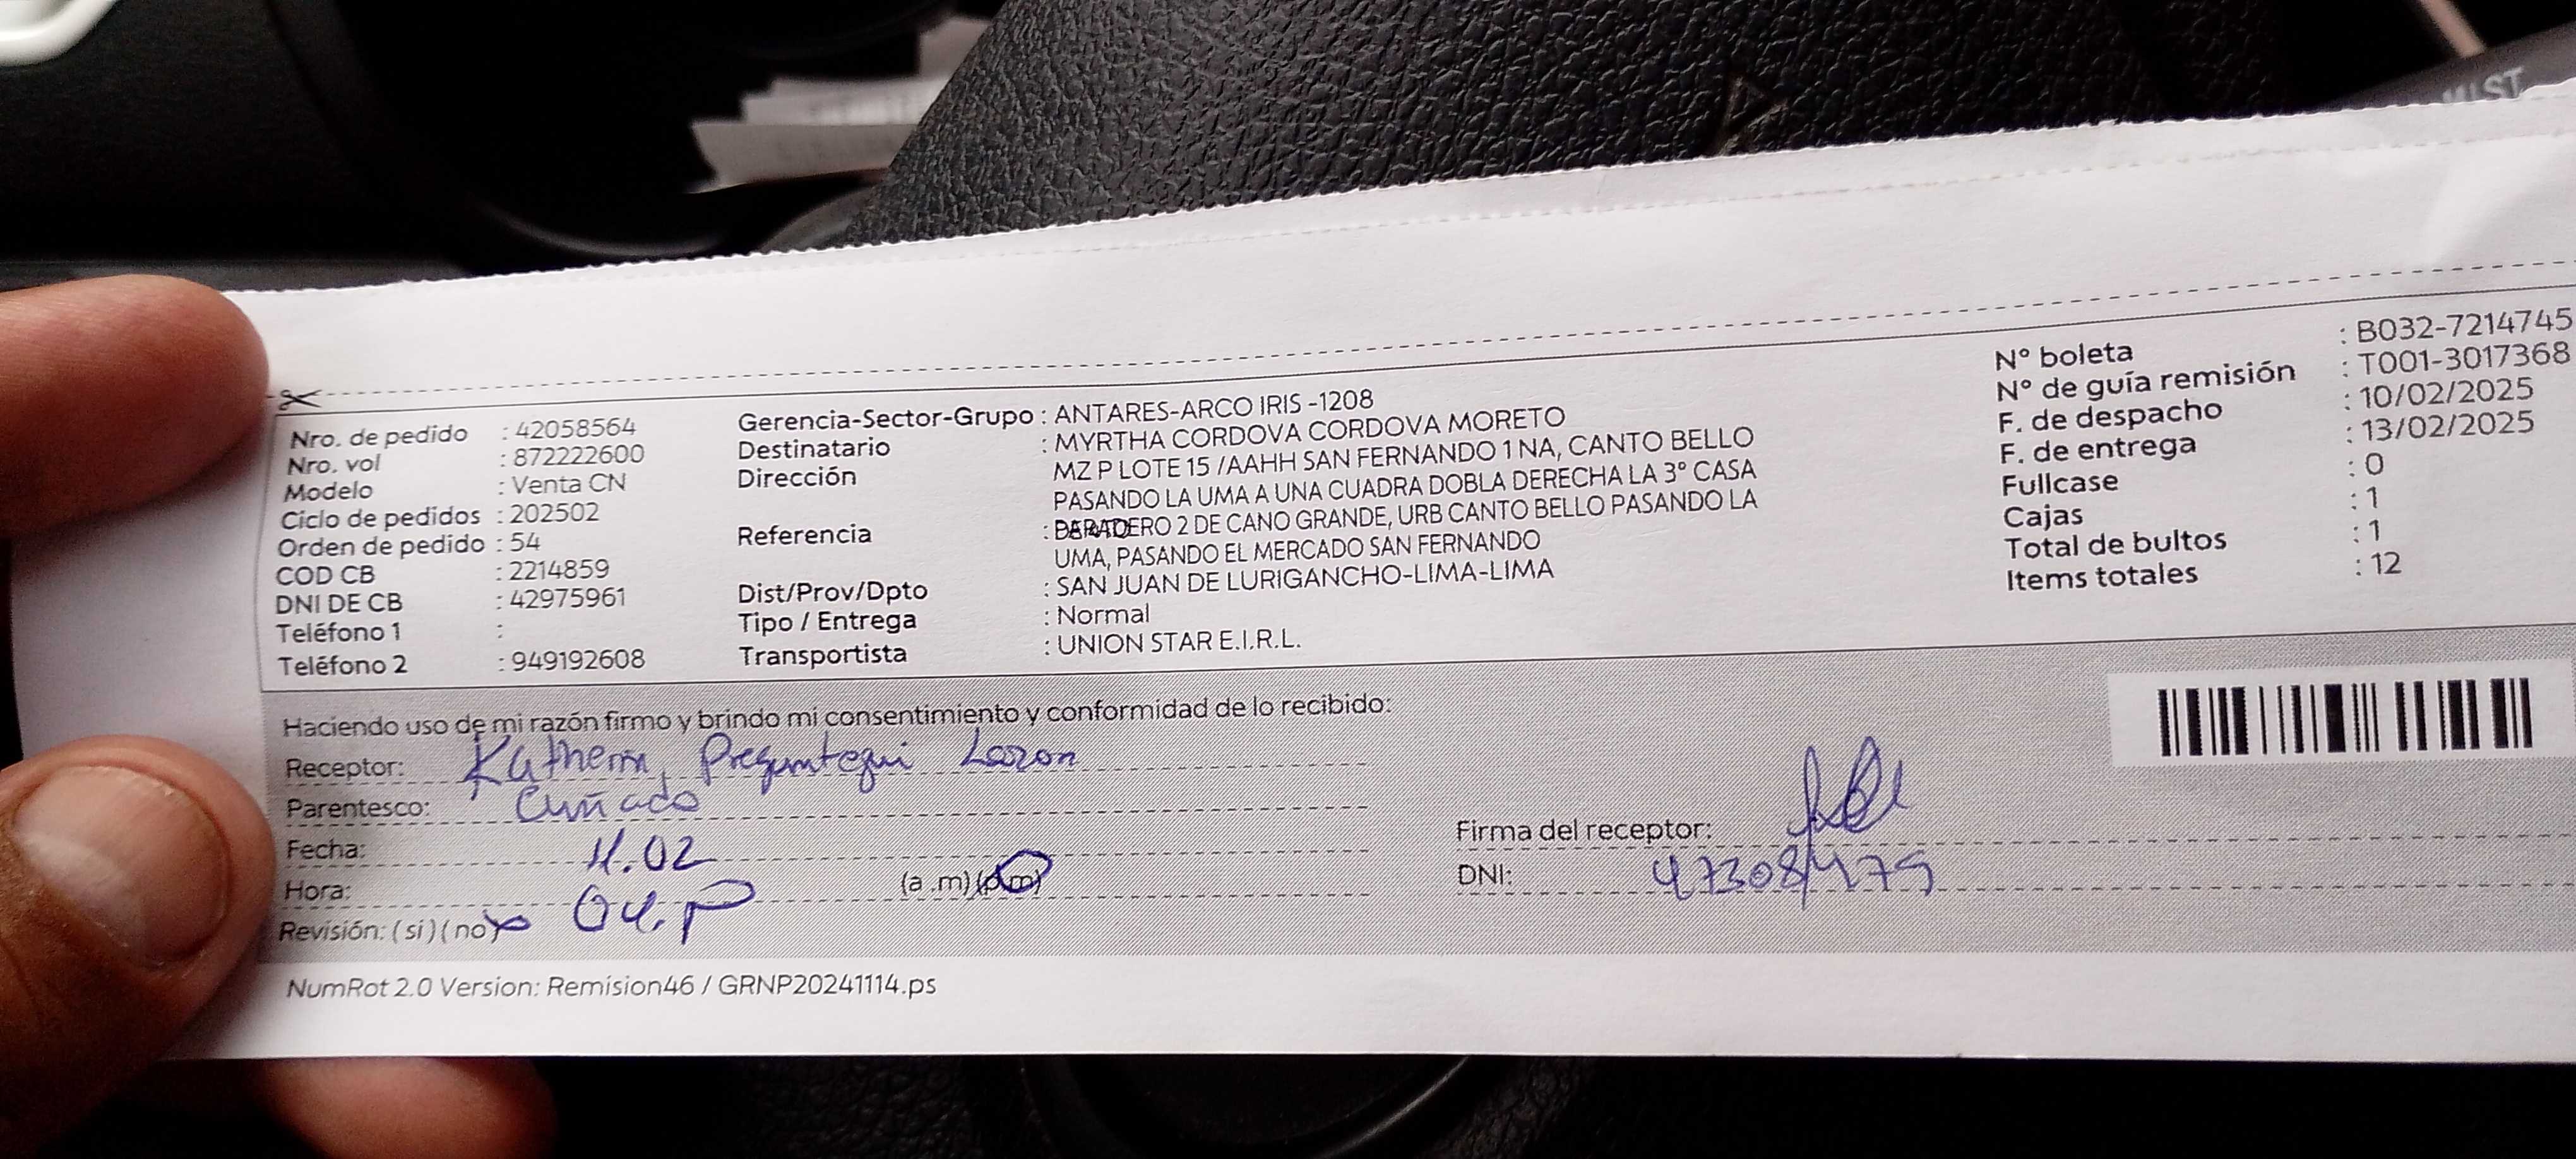 Nro. de pedido : 42058564
Nro. vol : 872222600
Modelo : Venta CN
Ciclo de pedidos : 202502
Orden de pedido : 54
COD CB : 2214859
DNI DE CB : 42975961
Teléfono 1 :
Teléfono 2 : 949192608
Gerencia-Sector-Grupo : ANTARES-ARCO IRIS -1208
Destinatario : MYRTHA CORDOVA CORDOVA MORETO
Dirección MZ P LOTE 15 /AAHH SAN FERNANDO 1 NA, CANTO BELLO
PASANDO LA UMA A UNA CUADRA DOBLA DERECHA LA 3º CASA
Referencia : PARADERO 2 DE CANO GRANDE, URB CANTO BELLO PASANDO LA
UMA, PASANDO EL MERCADO SAN FERNANDO
Dist/Prov/Dpto : SAN JUAN DE LURIGANCHO-LIMA-LIMA
Tipo / Entrega : Normal
Transportista : UNION STAR E.I.R.L.
N° boleta : B032-7214745
N° de guía remisión : T001-3017368
F. de despacho : 10/02/2025
F. de entrega : 13/02/2025
Fullcase : 0
Cajas : 1
Total de bultos : 1
Items totales : 12
Haciendo uso de mi razón firmo y brindo mi consentimiento y conformidad de lo recibido:
Receptor: Katherin
Parentesco: Cuñado
Fecha: 11.02
Hora: 04.P (a .m) (p.m)
Revisión: ( si ) ( no )
Firma del receptor:
DNI: 47308479
NumRot 2.0 Version: Remision46 / GRNP20241114.ps